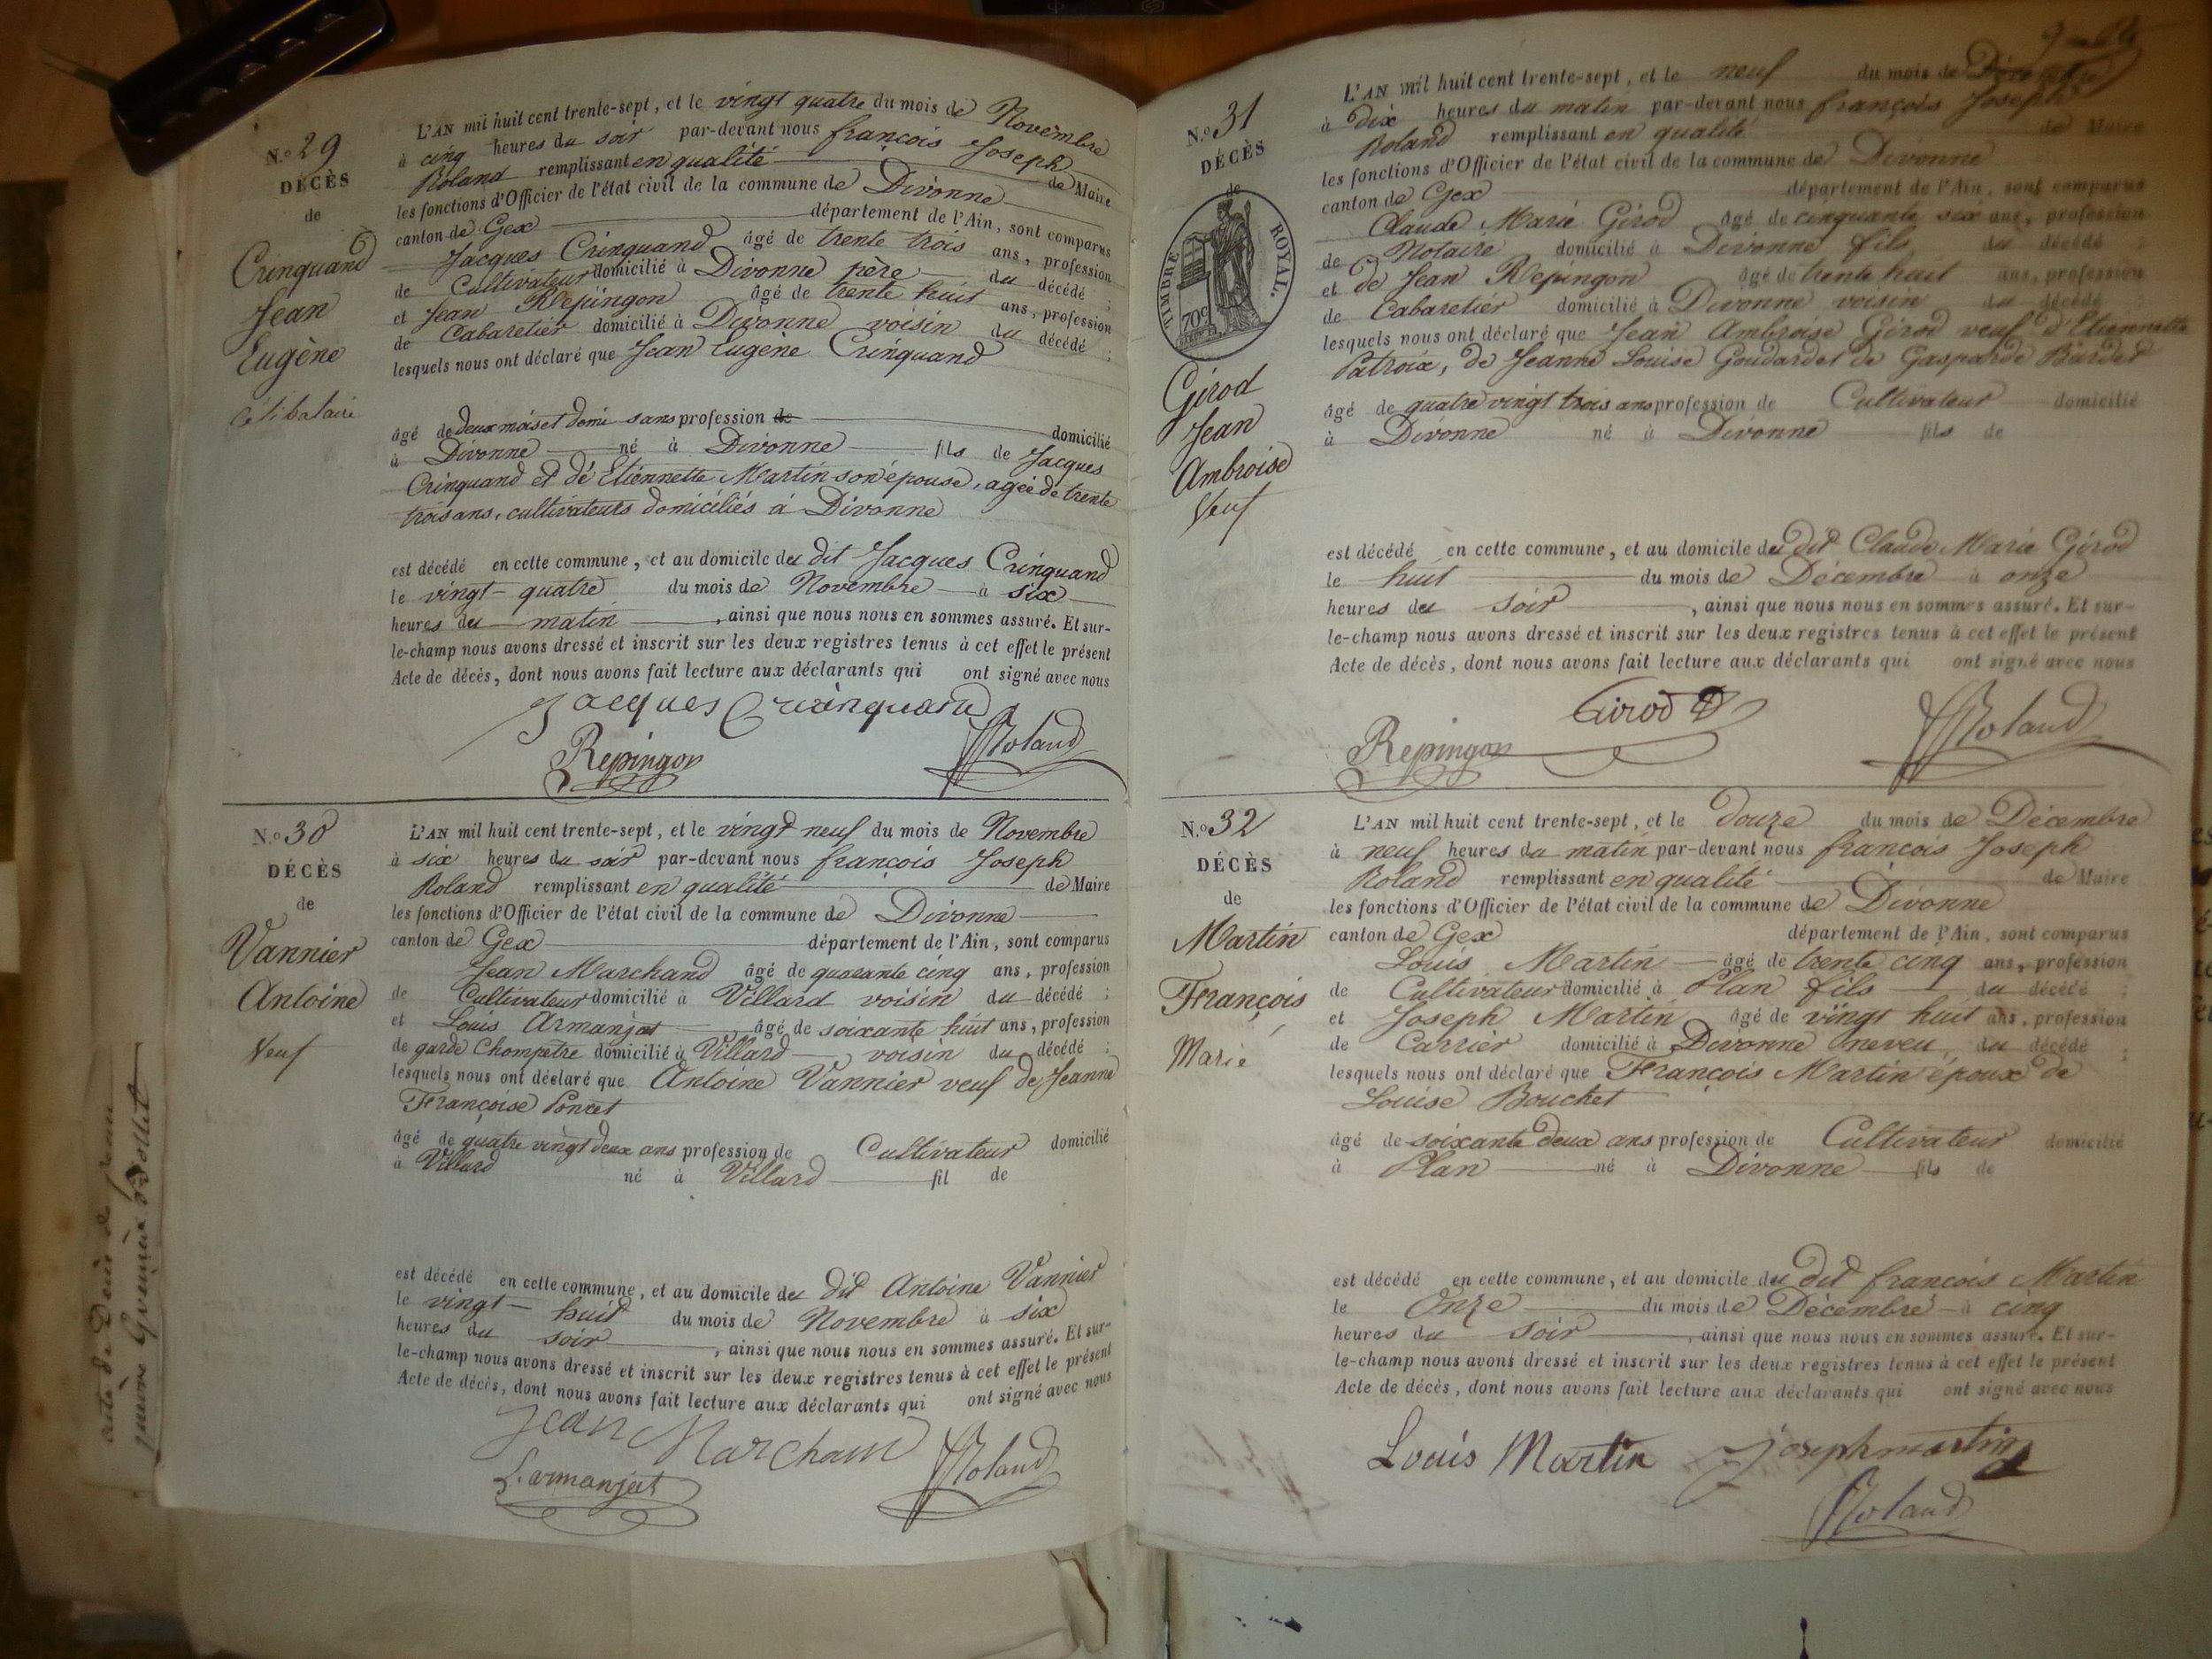 N.o 29
DÉCÈS
de
Crinquand
Jean
Eugène
célibataire
L'AN mil huit cent trente-sept, et le vingt quatre du mois de Novembre
à cinq heures du soir par-devant nous françois Joseph
Roland remplissant en qualité de Maire
les fonctions d'Officier de l'état civil de la commune de Divonne
canton de Gex département de l'Ain, sont comparus
Jacques Crinquand âgé de trente trois ans, profession
de Cultivateur domicilié à Divonne père du décédé ;
et Jean Repingon âgé de trente huit ans, profession
de Cabaretier domicilié à Divonne voisin du décédé ;
lesquels nous ont déclaré que Jean Eugène Crinquand
âgé de deux mois et demi sans profession de domicilié
à Divonne né à Divonne fils de Jacques
Crinquand et de Etiennette Martin son épouse, agée de trente
trois ans, cultivateurs domiciliés à Divonne
est décédé en cette commune, et au domicile du dit Jacques Crinquand
le vingt-quatre du mois de Novembre à six
heures du matin , ainsi que nous nous en sommes assuré. Et sur-
le-champ nous avons dressé et inscrit sur les deux registres tenus à cet effet le présent
Acte de décès, dont nous avons fait lecture aux déclarants qui ont signé avec nous
Jacques Crinquand
Repingon Roland
N.o 30
DÉCÈS
de
Vannier
Antoine
Veuf
L'AN mil huit cent trente-sept, et le vingt neuf du mois de Novembre
à six heures du soir par-devant nous françois Joseph
Roland remplissant en qualité de Maire
les fonctions d'Officier de l'état civil de la commune de Divonne
canton de Gex département de l'Ain, sont comparus
Jean Marchand âgé de quarante cinq ans, profession
de Cultivateur domicilié à Villard voisin du décédé ;
et Louis Armanjat âgé de soixante huit ans, profession
de garde Champetre domicilié à Villard , voisin du décédé ;
lesquels nous ont déclaré que Antoine Vannier veuf de Jeanne
Françoise Poncet
âgé de quatre vingt deux ans profession de Cultivateur domicilié
à Villard né à Villard fil de
est décédé en cette commune, et au domicile du dit Antoine Vannier
le vingt-huit du mois de Novembre à six
heures du soir , ainsi que nous nous en sommes assuré. Et sur-
le-champ nous avons dressé et inscrit sur les deux registres tenus à cet effet le présent
Acte de décès, dont nous avons fait lecture aux déclarants qui ont signé avec nous
Jean Marchand
L. armanjat Roland
N.o 31
DÉCÈS
de
TIMBRE ROYAL.
70c
Girod
Jean
Ambroise
Veuf
L'AN mil huit cent trente-sept, et le neuf du mois de Décembre
à dix heures du matin par-devant nous françois Joseph
Roland remplissant en qualité de Maire
les fonctions d'Officier de l'état civil de la commune de Divonne
canton de Gex département de l'Ain, sont comparus
Claude Marie Girod âgé de cinquante six ans, profession
de Notaire domicilié à Divonne fils du décédé ;
et de Jean Repingon âgé de trente huit ans, profession
de Cabaretier domicilié à Divonne voisin du décédé
lesquels nous ont déclaré que Jean Ambroise Girod veuf d'Etiennette
Patroix, de Jeanne Louise Goudard et de Gasparde Burdet
âgé de quatre vingt trois ans profession de Cultivateur domicilié
à Divonne né à Divonne fils de
est décédé en cette commune, et au domicile du dit Claude Marie Girod
le huit du mois de Décembre à onze
heures du soir , ainsi que nous nous en sommes assuré. Et sur-
le-champ nous avons dressé et inscrit sur les deux registres tenus à cet effet le présent
Acte de décès, dont nous avons fait lecture aux déclarants qui ont signé avec nous
Girod
Repingon Roland
N.o 32
DÉCÈS
de
Martin
François
Marié
L'AN mil huit cent trente-sept, et le douze du mois de Décembre
à neuf heures du matin par-devant nous françois Joseph
Roland remplissant en qualité de Maire
les fonctions d'Officier de l'état civil de la commune de Divonne
canton de Gex département de l'Ain, sont comparus
Louis Martin âgé de trente cinq ans, profession
de Cultivateur domicilié à Plan fils du décédé ;
et Joseph Martin âgé de vingt huit ans, profession
de Carrier domicilié à Divonne neveu, du décédé ;
lesquels nous ont déclaré que François Martin époux de
Louise Bouchet
âgé de soixante deux ans profession de Cultivateur domicilié
à Plan né à Divonne fils de
est décédé en cette commune, et au domicile du dit françois Martin
le Onze du mois de Décembre à cinq
heures du soir , ainsi que nous nous en sommes assuré. Et sur-
le-champ nous avons dressé et inscrit sur les deux registres tenus à cet effet le présent
Acte de décès, dont nous avons fait lecture aux déclarants qui ont signé avec nous
Louis Martin joseph martin
Roland